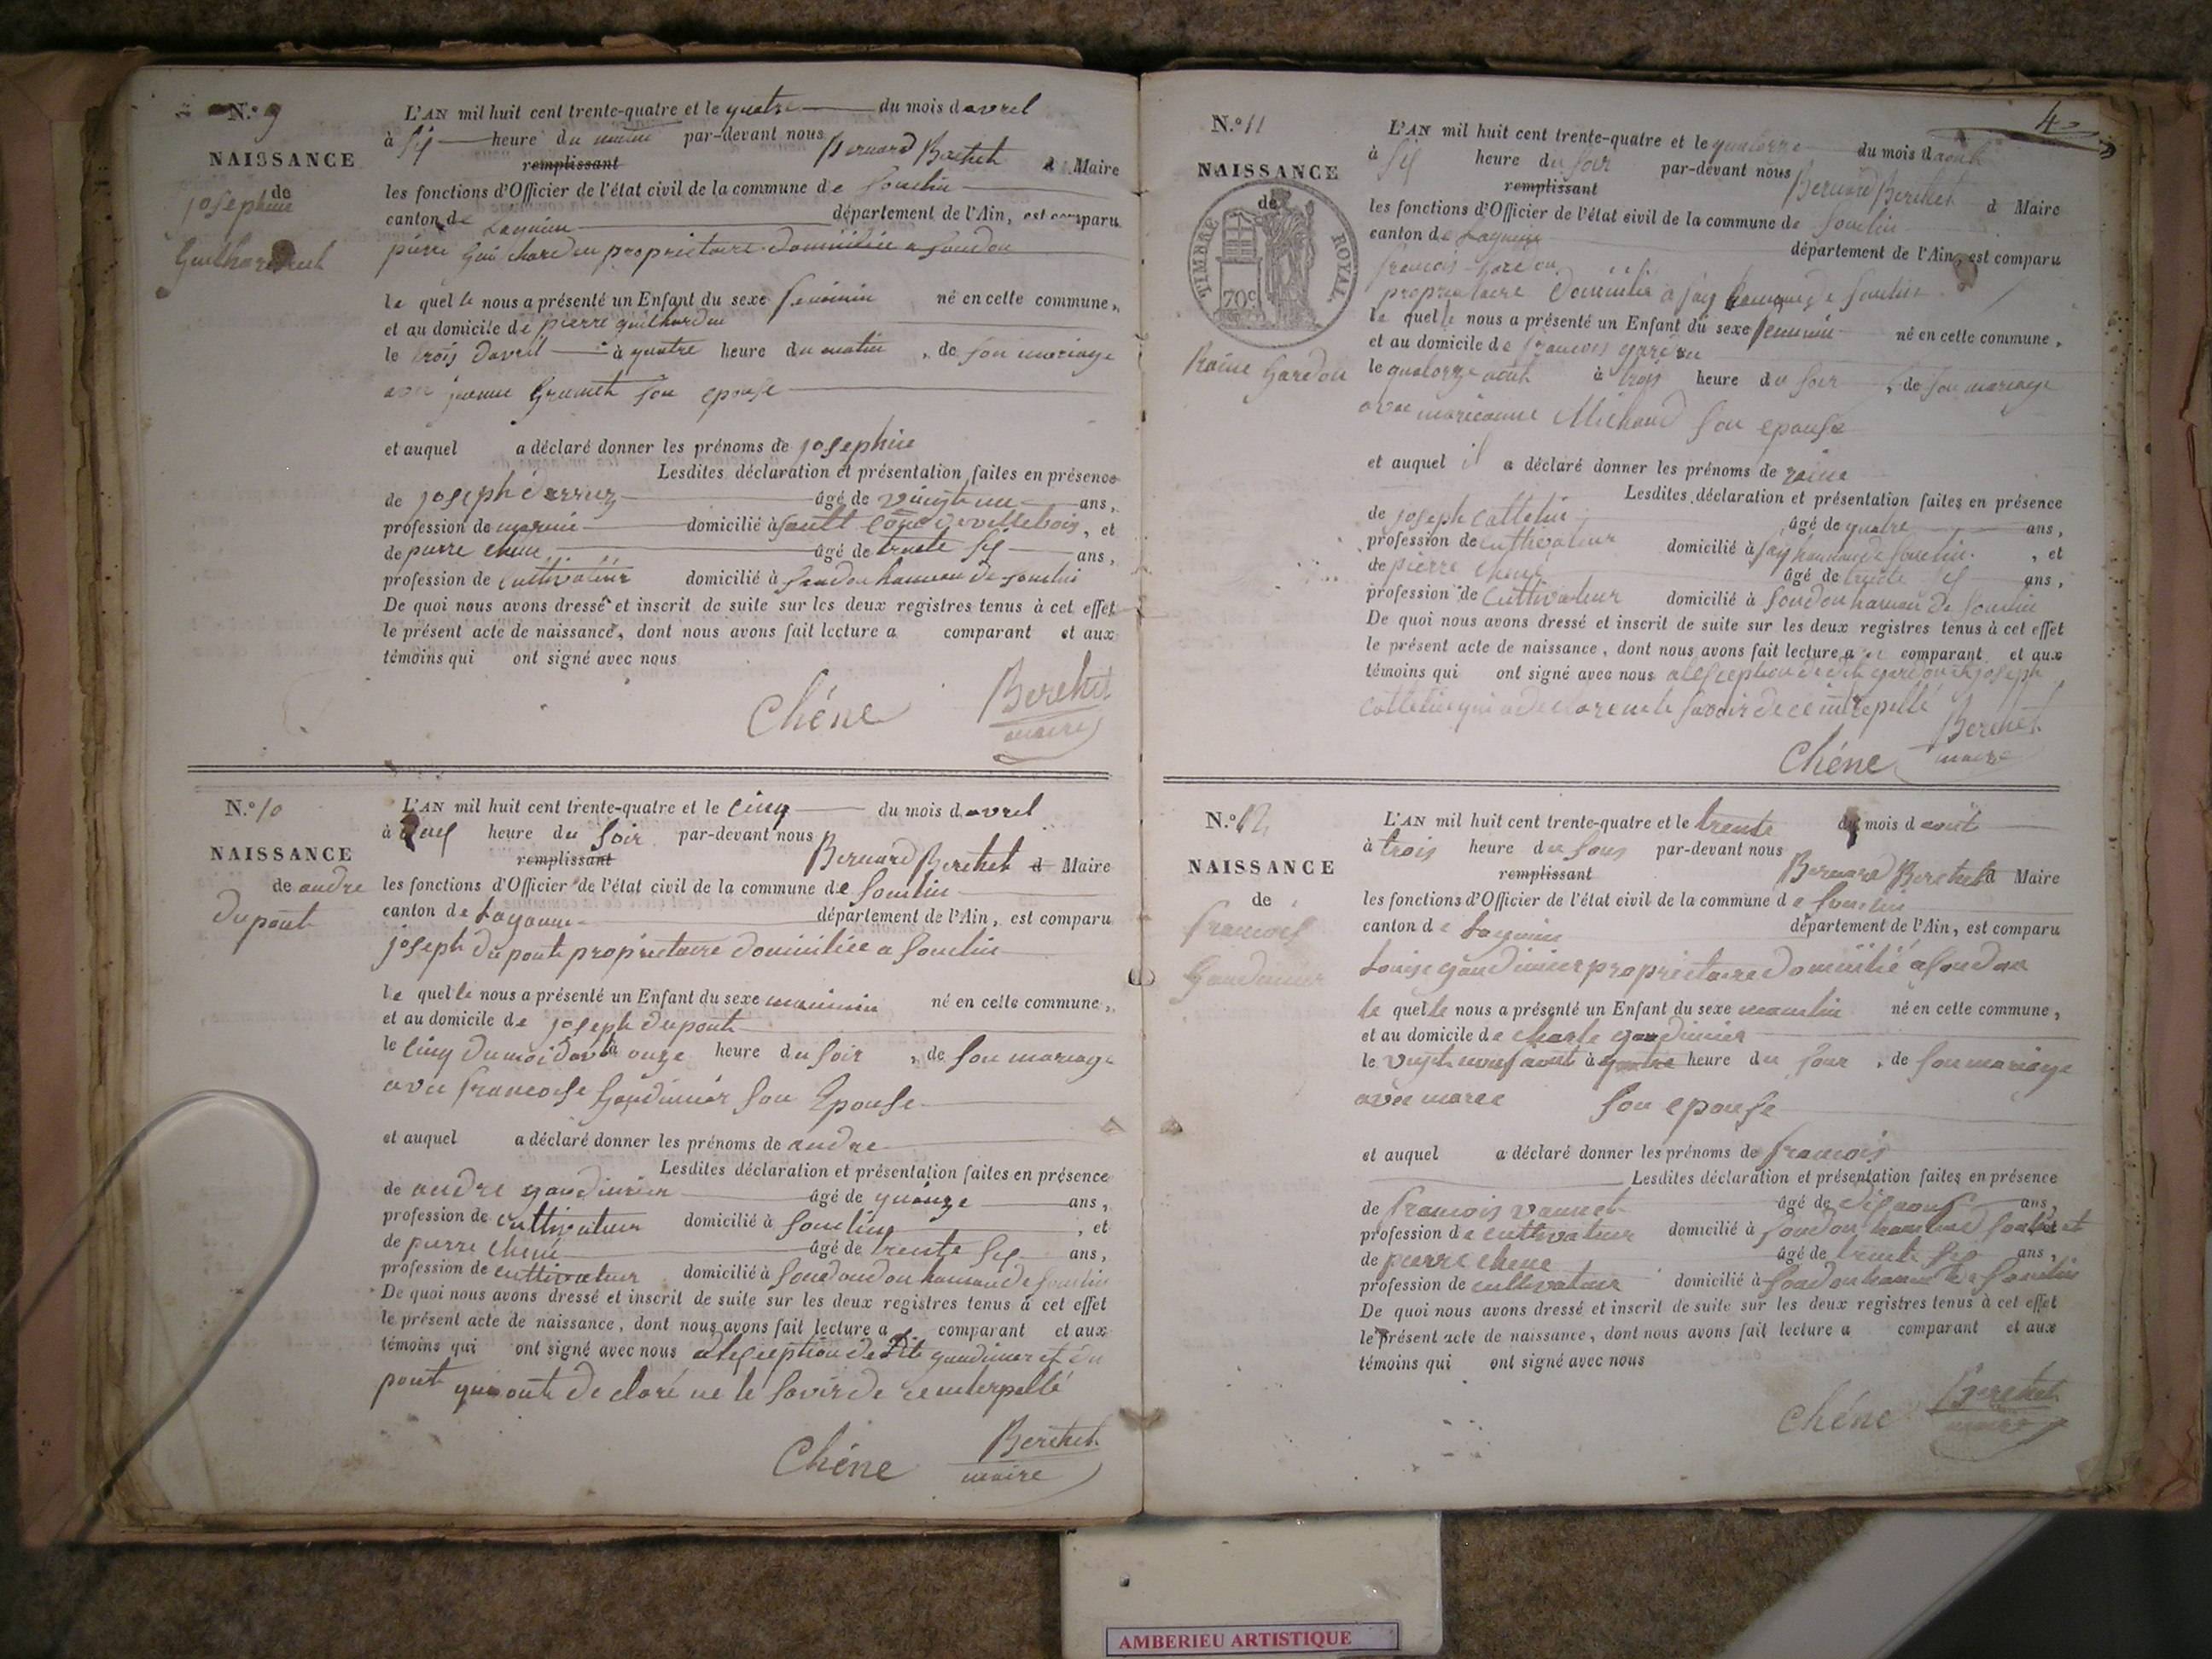 N.º 9
NAISSANCE
de
josephine
L'AN mil huit cent trente-quatre et le quatre du mois d avrel
à siş heure du matin par-devant nous
Bernard Berthet d Maire
remplissant
les fonctions d'Officier de l'état civil de la commune de Souclin
canton de Lagnieu département de l'Ain, est comparu
pierre proprietaire domiciliée a Soudon
le quel le nous a présenté un Enfant du sexe feminin né en cette commune,
et au domicile de pierre guilhardin
le trois davril à quatre heure du matin , de son mariage
avec jeanne Grumet son epouse
et auquel a déclaré donner les prénoms de josephine
Lesdites déclaration et présentation faites en présence
de joseph âgé de vingt un ans,
profession de domicilié à Sault de villebois, et
de pierre chene âgé de trente sis ans,
profession de cultivateur domicilié à Soudon hameau de Souclin
De quoi nous avons dressé et inscrit de suite sur les deux registres tenus à cet effet
le présent acte de naissance, dont nous avons fait lecture a comparant et aux
témoins qui ont signé avec nous
Chêne Berthet
maire
N.º 10
NAISSANCE
de andre
Dupont
L'AN mil huit cent trente-quatre et le cinq du mois d avrel
à heure du soir par-devant nous
Bernard Berthet d Maire
remplissant
les fonctions d'Officier de l'état civil de la commune de Souclin
canton de Lagnieu département de l'Ain, est comparu
joseph dupont proprietaire domiciliée a Souclin
le quel le nous a présenté un Enfant du sexe né en cette commune,
et au domicile de joseph dupont
le cinq du moi à onze heure du soir , de son mariage
avec francoise Gaudinier son Epouse
et auquel a déclaré donner les prénoms de andre
Lesdites déclaration et présentation faites en présence
de andre gaudinier âgé de ans,
profession de cultivateur domicilié à Souclin , et
de pierre chene âgé de trente sis ans,
profession de cultivateur domicilié à hameau de Souclin
De quoi nous avons dressé et inscrit de suite sur les deux registres tenus à cet effet
le présent acte de naissance, dont nous avons fait lecture a comparant et aux
témoins qui ont signé avec nous gaudinier et du
pont qui ont declaré ne le savir de ce interpellé
Chêne Berthet
maire
4
N.º 11
NAISSANCE
de
TIMBRE ROYAL.
70 c
Raine Gardon
L'AN mil huit cent trente-quatre et le quatorze du mois d aout
à sis heure du soir par-devant nous
Bernard Berthet d Maire
remplissant
les fonctions d'Officier de l'état sivil de la commune de Souclin
canton de Lagnieu département de l'Ain, est comparu
francois gardon
proprietaire domicilié à fay hameau de Souclin
le quel le nous a présenté un Enfant du sexe feminin né en cette commune,
et au domicile de francois gardon
le quatorze aout à trois heure du soir , de son mariage
avec marieanne Michaud son epouse
et auquel il a déclaré donner les prénoms de raine
Lesdites déclaration et présentation faites en présence
de joseph cattelin âgé de quatre ans,
profession de cultivateur domicilié à fay hameau de Souclin , et
de pierre chene âgé de trente sis ans,
profession de cultivateur domicilié à Soudon hameau de Souclin
De quoi nous avons dressé et inscrit de suite sur les deux registres tenus à cet effet
le présent acte de naissance, dont nous avons fait lecture a comparant et aux
témoins qui ont signé avec nous gardon et joseph
cattelin qui savoir de ce interpellé
Chêne Berthet
maire
N.º 12
NAISSANCE
de
francois
Gaudinier
L'AN mil huit cent trente-quatre et le trente du mois d aoüt
à trois heure du par-devant nous
Bernard Berthet d Maire
remplissant
les fonctions d'Officier de l'état civil de la commune de Souclin
canton de Lagnieu département de l'Ain, est comparu
Louise gaudinier proprietaire domicilié a Soudon
le quel le nous a présenté un Enfant du sexe né en cette commune,
et au domicile de charle gaudinier
le vingt neuf aout à quatre heure du , de son mariage
avec marie son epouse
et auquel a déclaré donner les prénoms de francois
Lesdites déclaration et présentation faites en présence
de francois vannet âgé de ans,
profession de cultivateur domicilié à Soudon et
de pierre chene âgé de trente ans,
profession de cultivateur domicilié à Soudon hameau de Souclin
De quoi nous avons dressé et inscrit de suite sur les deux registres tenus à cet effet
le présent acte de naissance, dont nous avons fait lecture a comparant et aux
témoins qui ont signé avec nous
Chêne Berthet
maire
AMBERIEU ARTISTIQUE